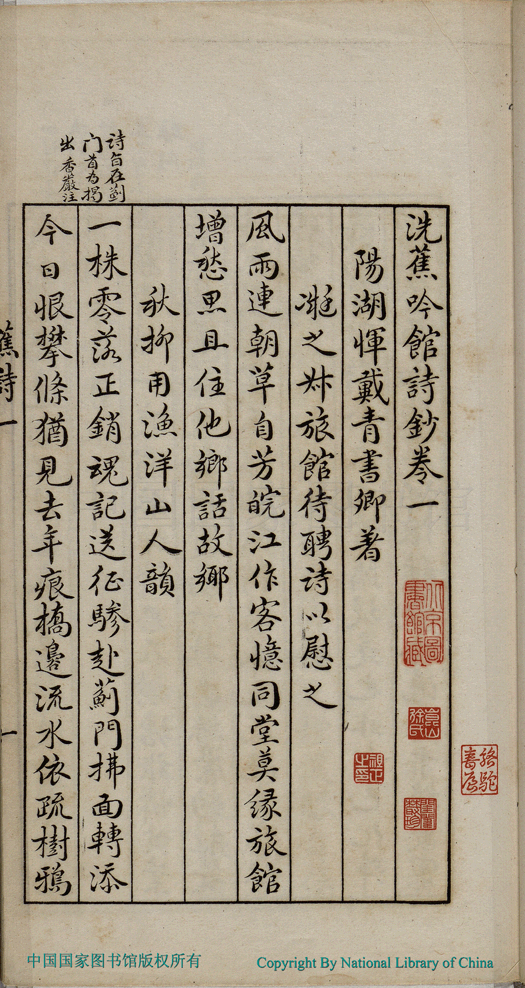 洗蕉吟館詩鈔卷一
陽湖惲戴青書卿著
凝之姊旅館待聘詩以慰之
風雨連朝草自芳皖江作客憶同堂莫緣旅館
增愁思且住他鄉話故鄉
秋柳用漁洋山人韻
一株零落正銷魂記送征驂赴薊門拂面轉添
今日恨攀條猶見去年痕橋邊流水依疏樹鴉
詩旨在薊
门首为揭
出 香嚴注
蕉詩一
一
北京圖
書館藏
中国国家图书馆版权所有
Copyright By National Library of China